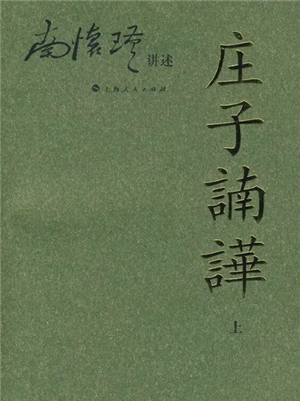 南懷瑾 讲述
上海人民出版社
庄子諵譁
上